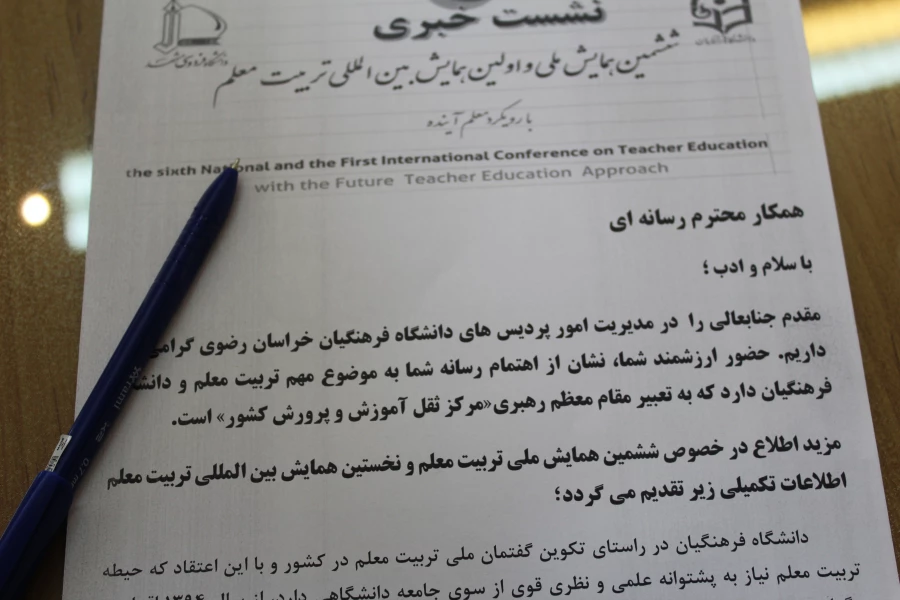 نشست خبری
ششمین همایش ملی و اولین همایش بین المللی تربیت معلم
با رویکرد معلم آینده
the sixth National and the First International Conference on Teacher Education
with the Future Teacher Education Approach
همکار محترم رسانه ای
با سلام و ادب ؛
مقدم جنابعالی را در مدیریت امور پردیس های دانشگاه فرهنگیان خراسان رضوی گرامی
داریم. حضور ارزشمند شما، نشان از اهتمام رسانه شما به موضوع مهم تربیت معلم و
فرهنگیان دارد که به تعبیر مقام معظم رهبری«مرکز ثقل آموزش و پرورش کشور» است.
مزید اطلاع در خصوص ششمین همایش ملی تربیت معلم و نخستین همایش بین المللی تربیت معلم
اطلاعات تکمیلی زیر تقدیم می گردد؛
دانشگاه فرهنگیان در راستای تکوین گفتمان ملی تربیت معلم در کشور و با این اعتقاد که حیطه
تربیت معلم نیاز به پشتوانه علمی و نظری قوی از سوی جامعه دانشگاهی دارد، از سال ۱۳۹۴